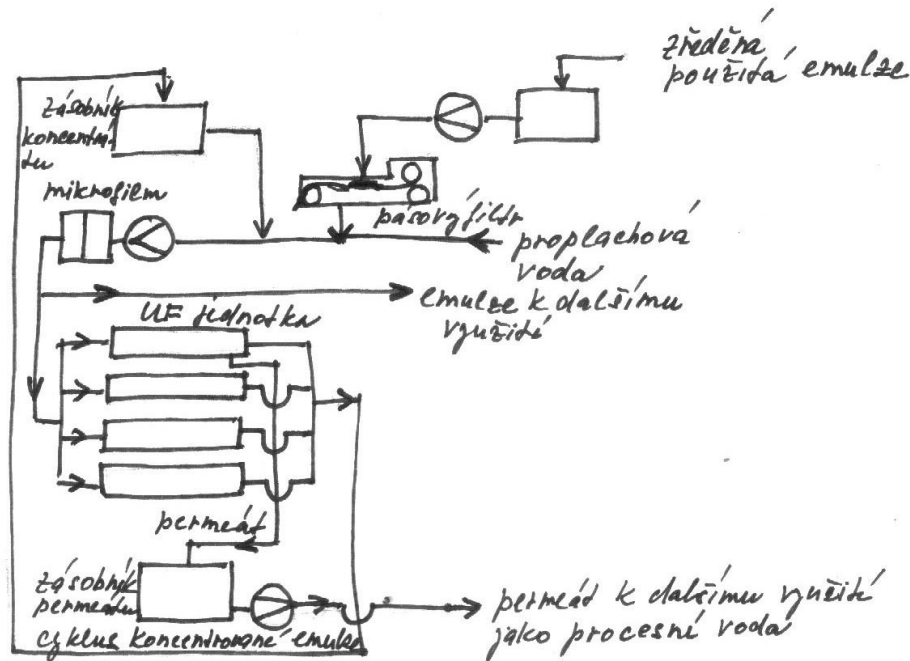 zředěná
použitá emulze
zásobník
koncentrá-
tu
mikrofilm
pásový filtr
proplachová
voda
emulze k dalšímu
využití
UF jednotka
permeát
zásobník
permeátu
cyklus koncentrované emulze
permeát k dalšímu využití
jako procesní voda